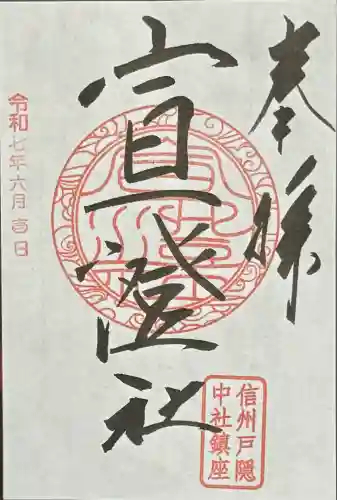 奉拝
宣澄社
令和七年六月吉日
信州戸隠
中社鎮座